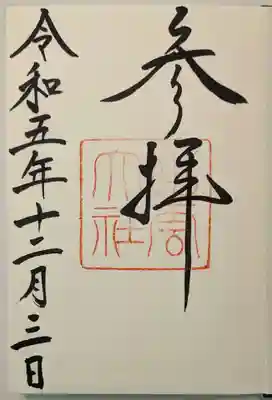 参拝
大社
令和五年十二月三日